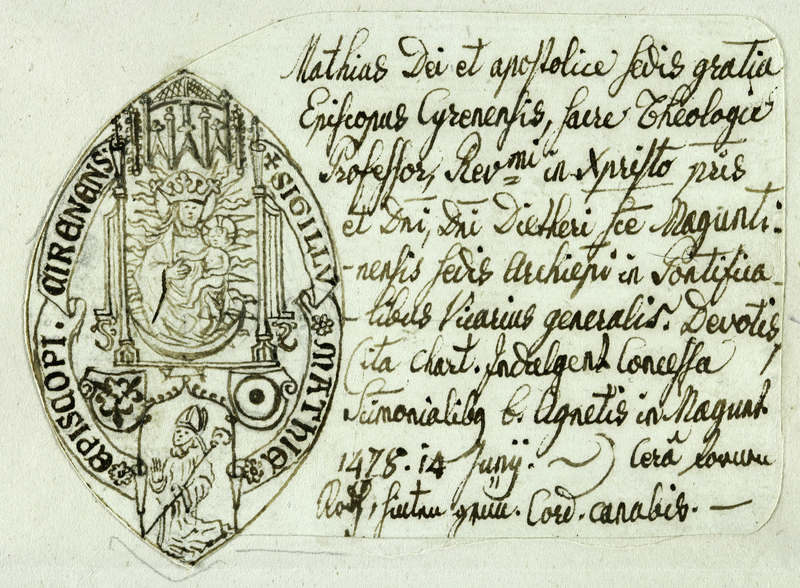 ✠ SIGILLV ✿ MATHIE
EPISCOPI · CIRENENS
Mathias Dei et apostolice sedis gratia
Episcopus Cyrenensis, sacre Theologie
Professor, Rev.mi in Xpristo pris
et Dni, Dni Dietheri sce Magunti:
-nensis sedis Archiepi in Pontifica-
-libus Vicarius generalis. Devotis
(ita chart. Indulgent Concessa
Stimonialibq b. Agnetis in Magunt
1478. 14 Junij. Cerâ
Cord. canabis. —